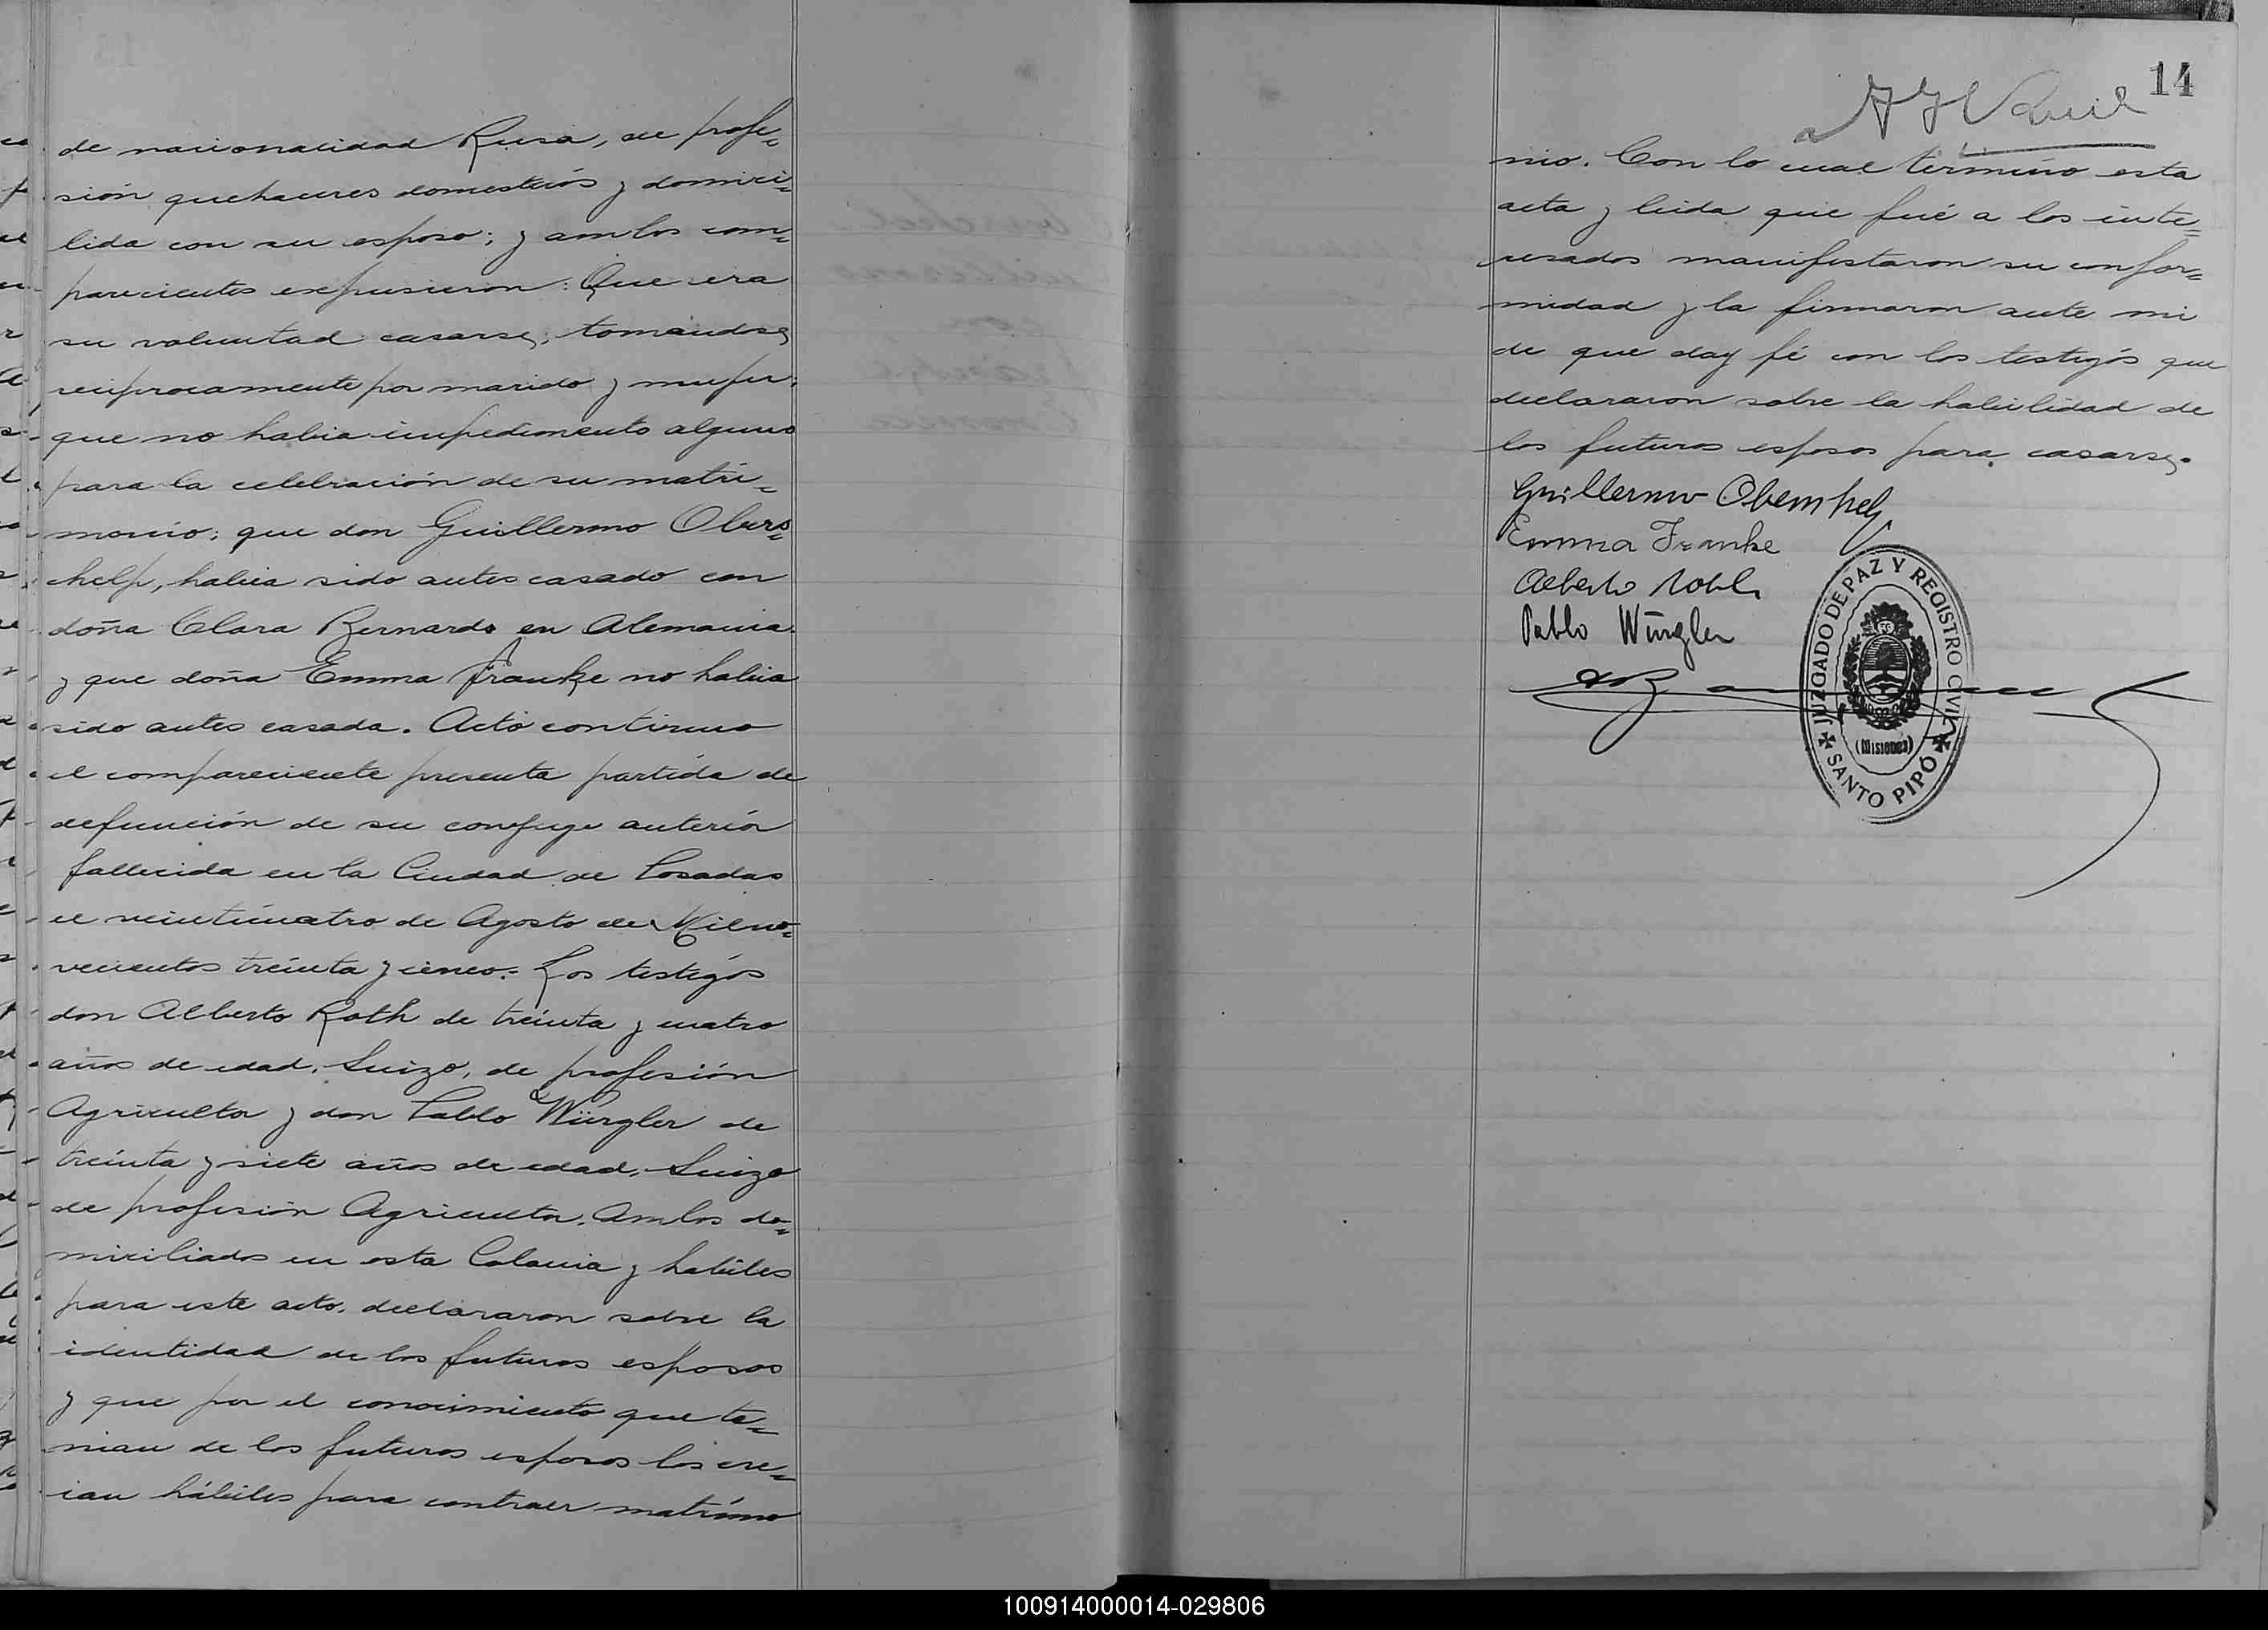 de nacionalidad Rusa, de profe=
sión quehaceres domesticós y domici=
lida con su esposo; y ambos com=
parecientes expusieron: Que era
su voluntad casarse; tomandose
reciprocamente por marido y mujer;
que no habia impedimento alguno
para la celebración de su matri=
monio; que don Guillermo Obers=
help, habia sido antes casado con
doña Clara Bernards en Alemania
y que doña Emma Franke no habia
sido antes casada. Acto continuo
el compareciente presenta partida de
defunción de su conyuge anteriór
fallecida en la Ciudad de Posadas
el veinticuatro de Agosto de Milno=
vecientos treinta y cinco.= Los testigós
don Alberto Roth de treinta y cuatro
años de edad, Suizo, de profesión
Agricultor y don Pablo Würgler de
treinta y siete años de edad, Suizo
de profesión Agricultor. Ambos do=
miciliados en esta Colonia y habiles
para este acto, declararon sobre la
identidad de los futuros esposos
y que por el conocimiento que te=
nian de los futuros esposos los cre=
ian hábiles para contraer matrimo
14
nio. Con lo cual termino esta
acta y leida que fué a los inte=
resados manifestaron su confor=
midad y la firmaron ante mi
de que doy fé con los testigós que
declararon sobre la habilidad de
los futuros esposos para casarse.
Guillermo Obershelp
Emma Franke
Alberto Roth
Pablo Würgler
JUZGADO DE PAZ Y REGISTRO CIVIL
(Misiones)
SANTO PIPÓ
100914000014-029806